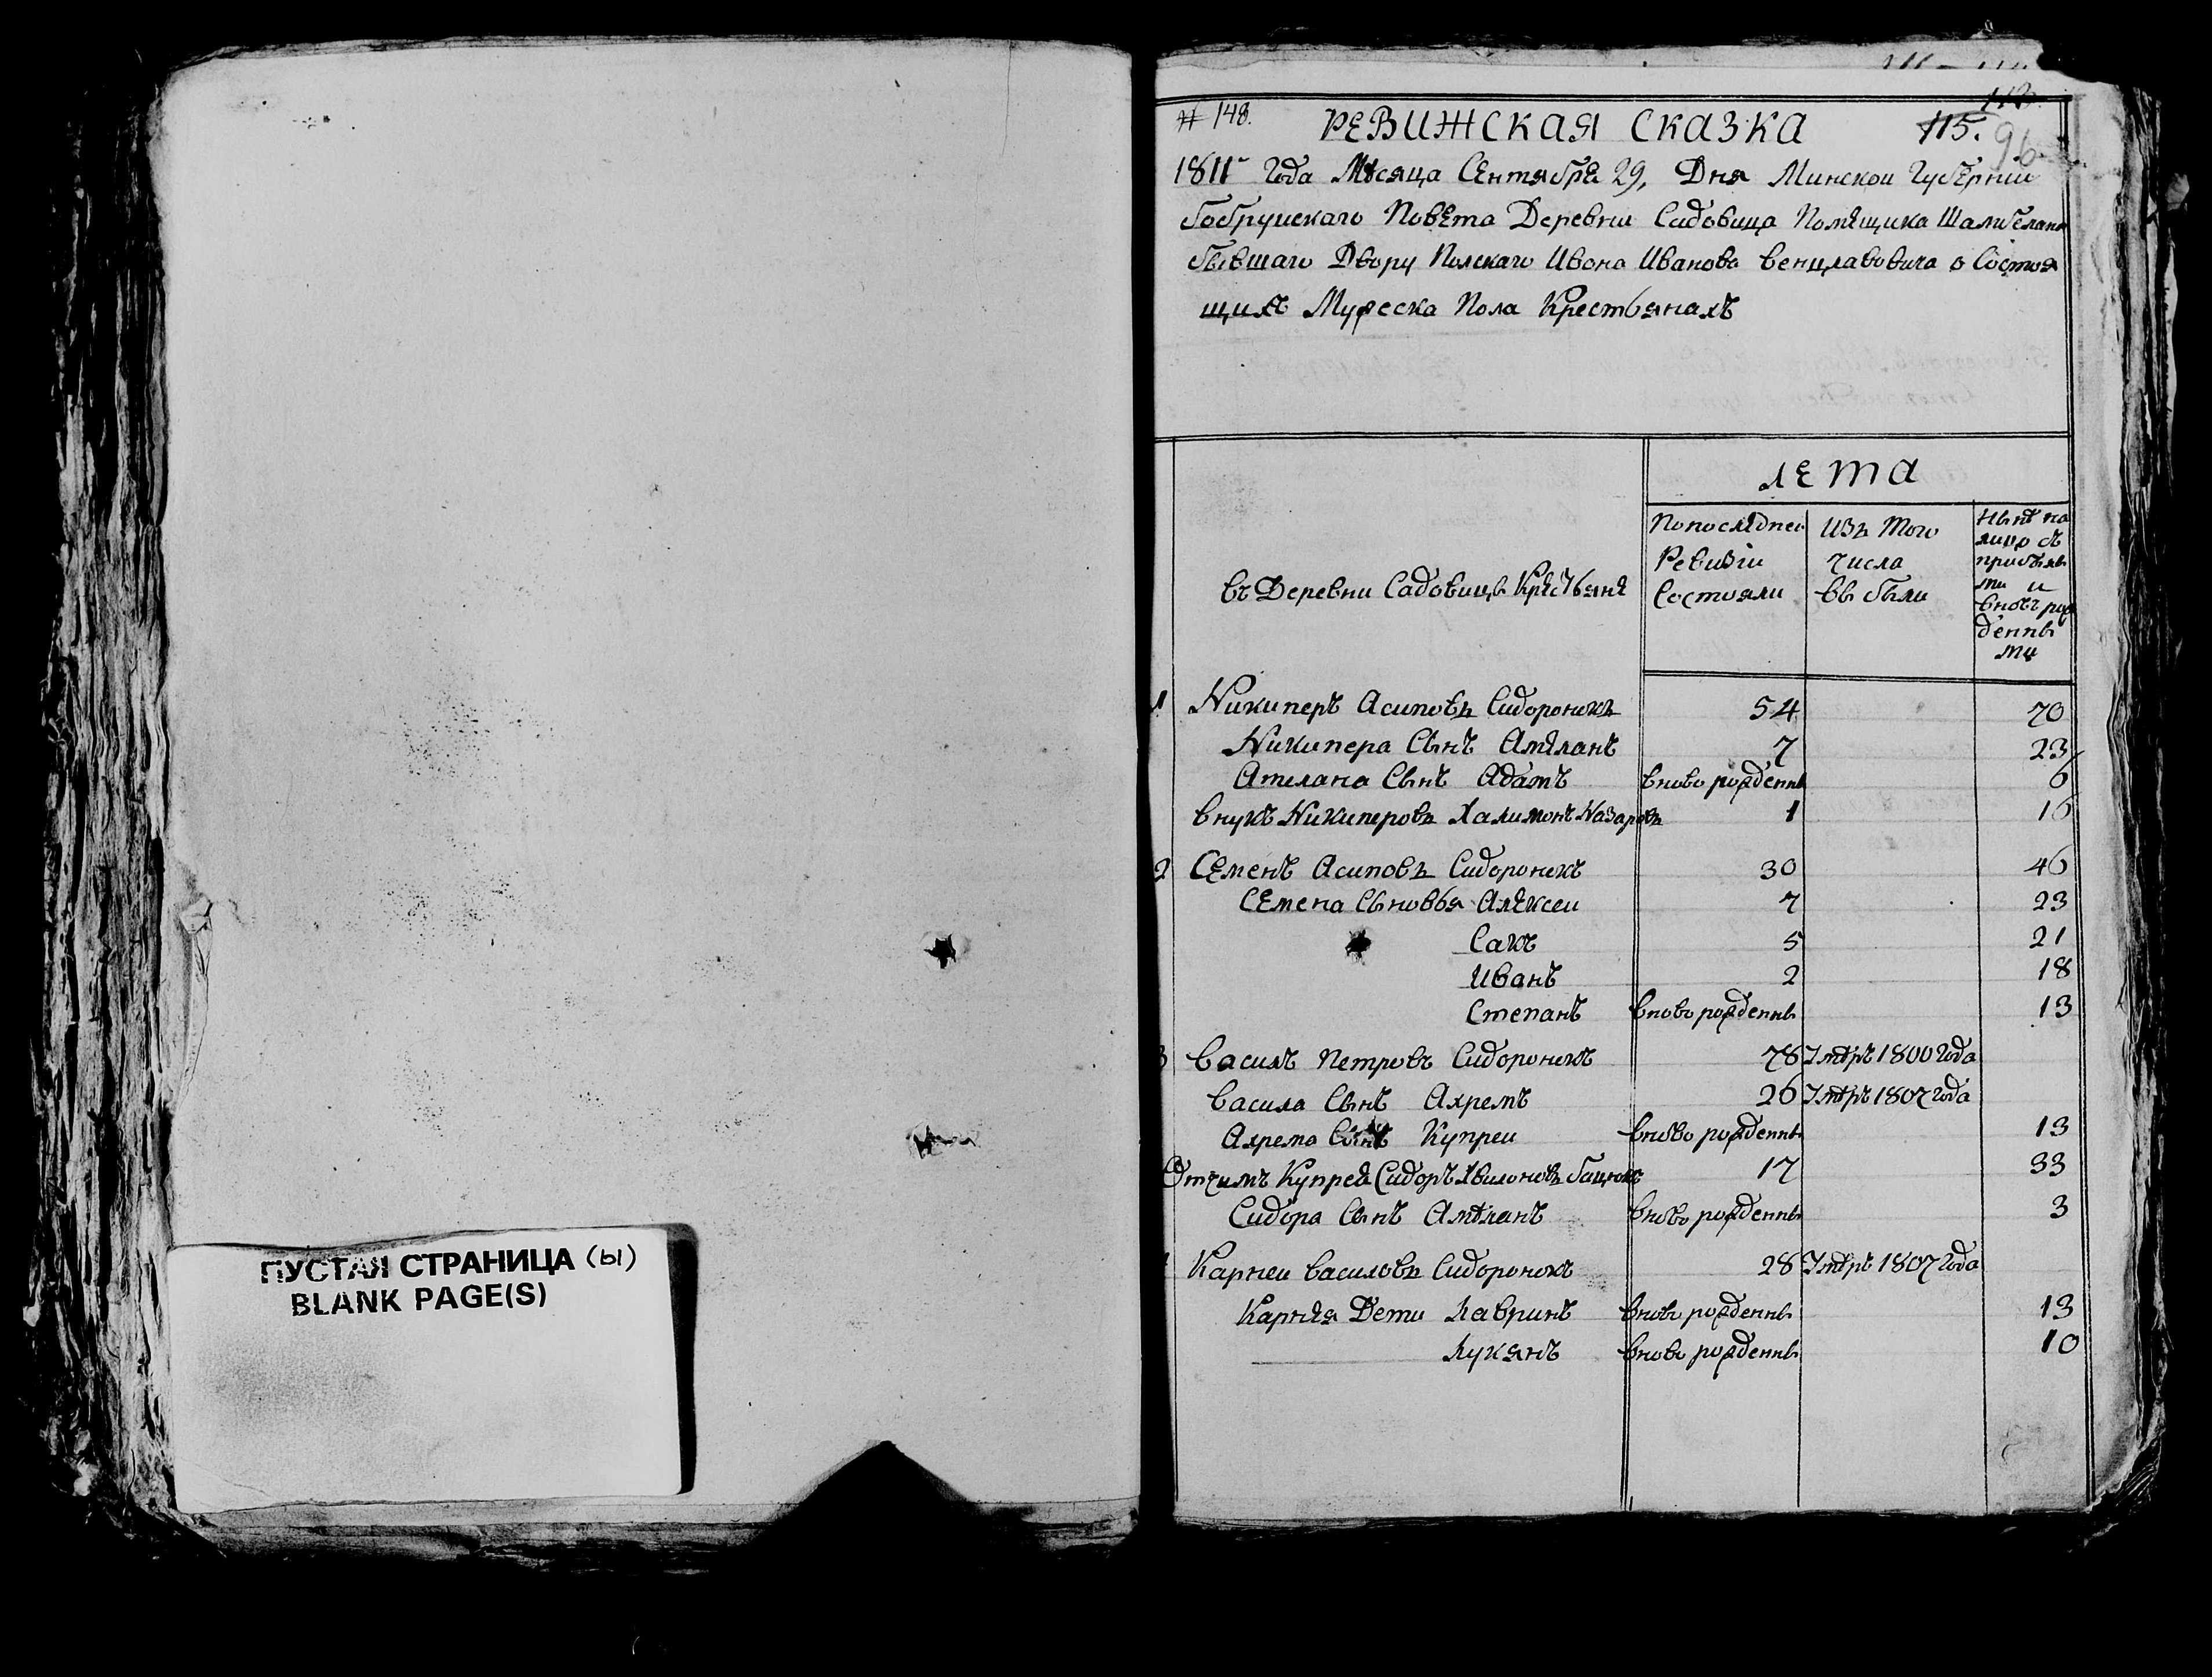 ПУСТАЯ СТРАНИЦА (ы)
BLANK PAGE(S)
№ 148. РЕВИЖСКАЯ СКАЗКА 115. 96
1811 Года Мѣсяца Сентября 29, Дня Минскои Губернии
бобруискаго Повѣта Деревни Садовица Помѣщика Шамбелана
бывшаго Двору Полскаго Ивана Иванова венцлавовича о Состоя
щихъ Мужеска Пола Крестьянахъ
лета
въ Деревни Садовицѣ Крестьянѣ
Попослѣднеи
Ревизіи
Состояли
Изъ Того
числа
выбыли
Нынѣ на
лицо съ
прибылы
ми и
вновъ рож
денны
ми
1 Никиперъ Асиповъ Сидоронокъ 54 70
Никипера Сынъ Амѣлянъ 7 23
Амелана Сынъ Адамъ вново рожденны 6
внукъ Никиперовъ Халимонъ Назаровъ 1 16
2 Семенъ Асиповъ Сидоронокъ 30 46
Семена Сыновья Алѣксеи 7 23
Сакъ 5 21
Иванъ 2 18
Степанъ вново рожденны 13
3 Василъ Петровъ Сидоронокъ 78 Умѣръ 1800 Года
Васила Сынъ Ахремъ 26 Умѣръ 1807 года
Ахрема Сынъ Купреи вново рожденны 13
Отчимъ Купрея Сидоръ Хвилоновъ бацюкъ 17 33
Сидора Сынъ Амѣлянъ вново рожденны 3
Карнеи Василовъ Сидоронокъ 28 Умѣръ 1807 Года
Карнѣя Дети Лавринъ вново рожденны 13
Лукянъ вново рожденны 10